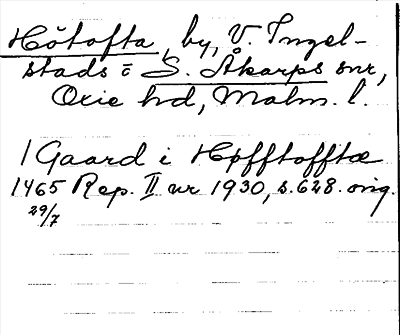 Hötofta, by, V. Ingel-
stads o S. Åkarps snr,
Oxie hd, Malm. l.
1 Gaard i Høfftofftæ
1465 Rep. II nr 1930, s. 628. orig.
29/7